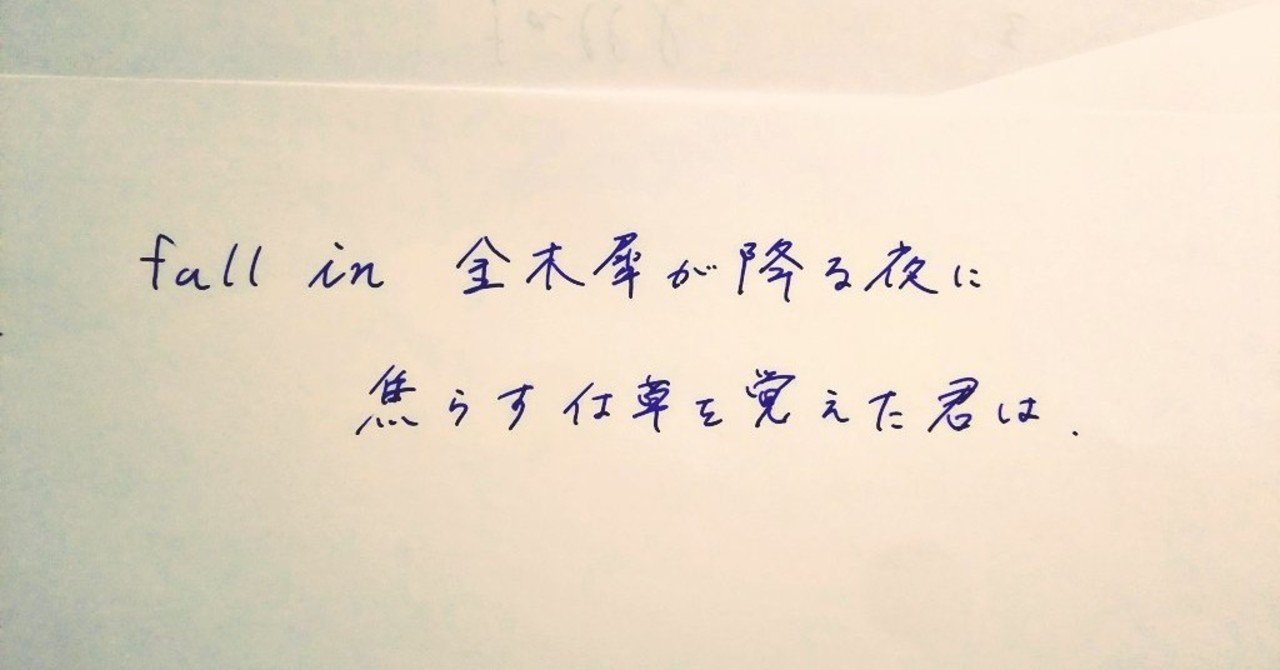 fall in 金木犀が降る夜に
焦らす仕草を覚えた君は.